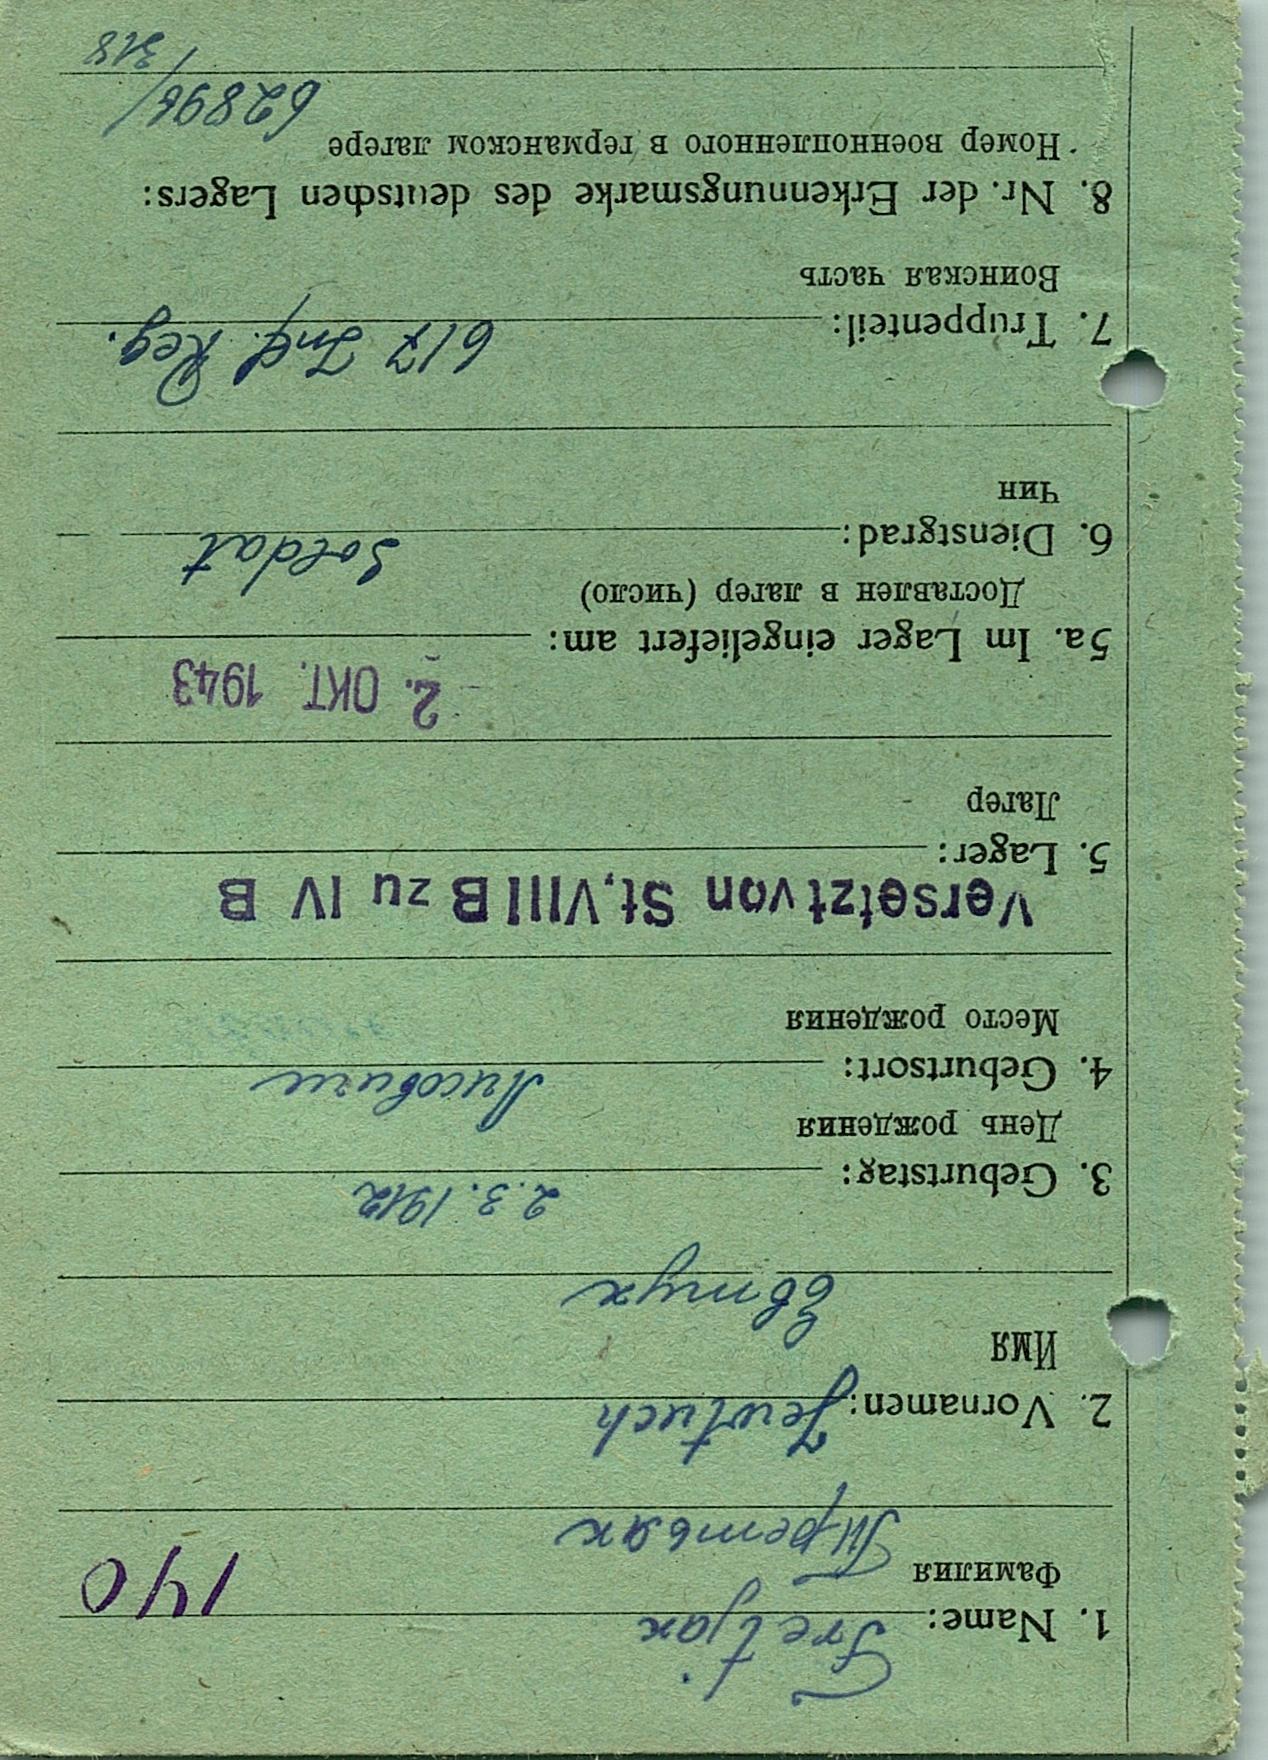 Tretjak
1. Name:
140
Фамилия
Третьяк
2. Vornamen: Jewtuch
Имя
Евтух
3. Geburtstag: 2.3.1912
День рождения
4. Geburtsort: Лисовичи
Место рождения
Versetzt von St. VIII B zu IV B
5. Lager:
Лагер
2. OKT. 1943
5a. Im Lager eingeliefert am:
Доставлен в лагер (число)
6. Dienstgrad: Soldat
Чин
7. Truppenteil: 617 Inf. Reg.
Воинская часть
8. Nr. der Erkennungsmarke des deutschen Lagers:
Номер военнопленного в германском лагере
62896/
318